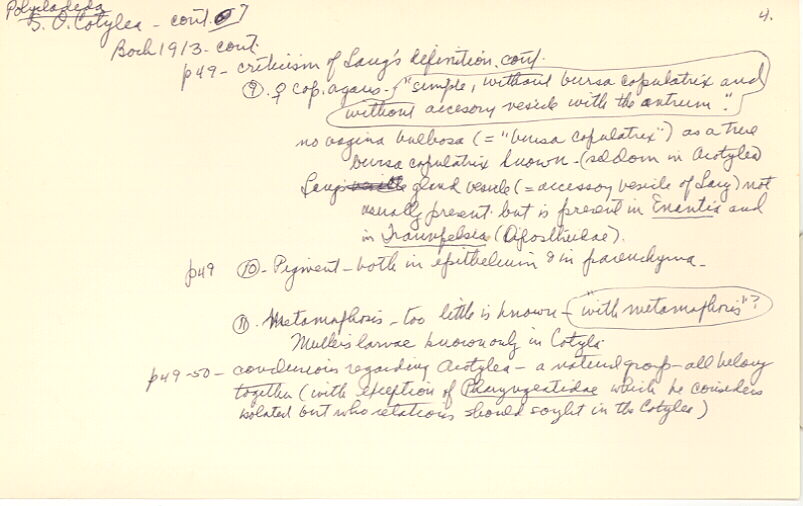 Polycladeda
S. O. Cotylea - cont. 7
4.
Bock 1913 - cont.
p49 - criticism of Lang's definition, cont.
⑨. ♀ cop. agans - "simple, without bursa copulatrix and
without accesory vesicle with the antrum."
no vagina bulbosa (= "bursa copulatrix") as a true
bursa copulatrix known - (seldom in Acotylea)
Lang's gland vesicle (= accessory vesicle of Lang) not
usually present but is present in Enantia and
in Traunfelsia (Diposthiidae).
p49 ⑩ - Pigment - both in epithelium & in parenchyma -
⑪. Metamaphosis - too little is known - "with metamaphosis"?
Mullers larvae known only in Cotyla.
p49-50 - conclusions regarding Acotylea - a natural group - all belong
together (with exception of Pharyngeatidae which he considers
isolated but who relations should sought in the Cotylea)